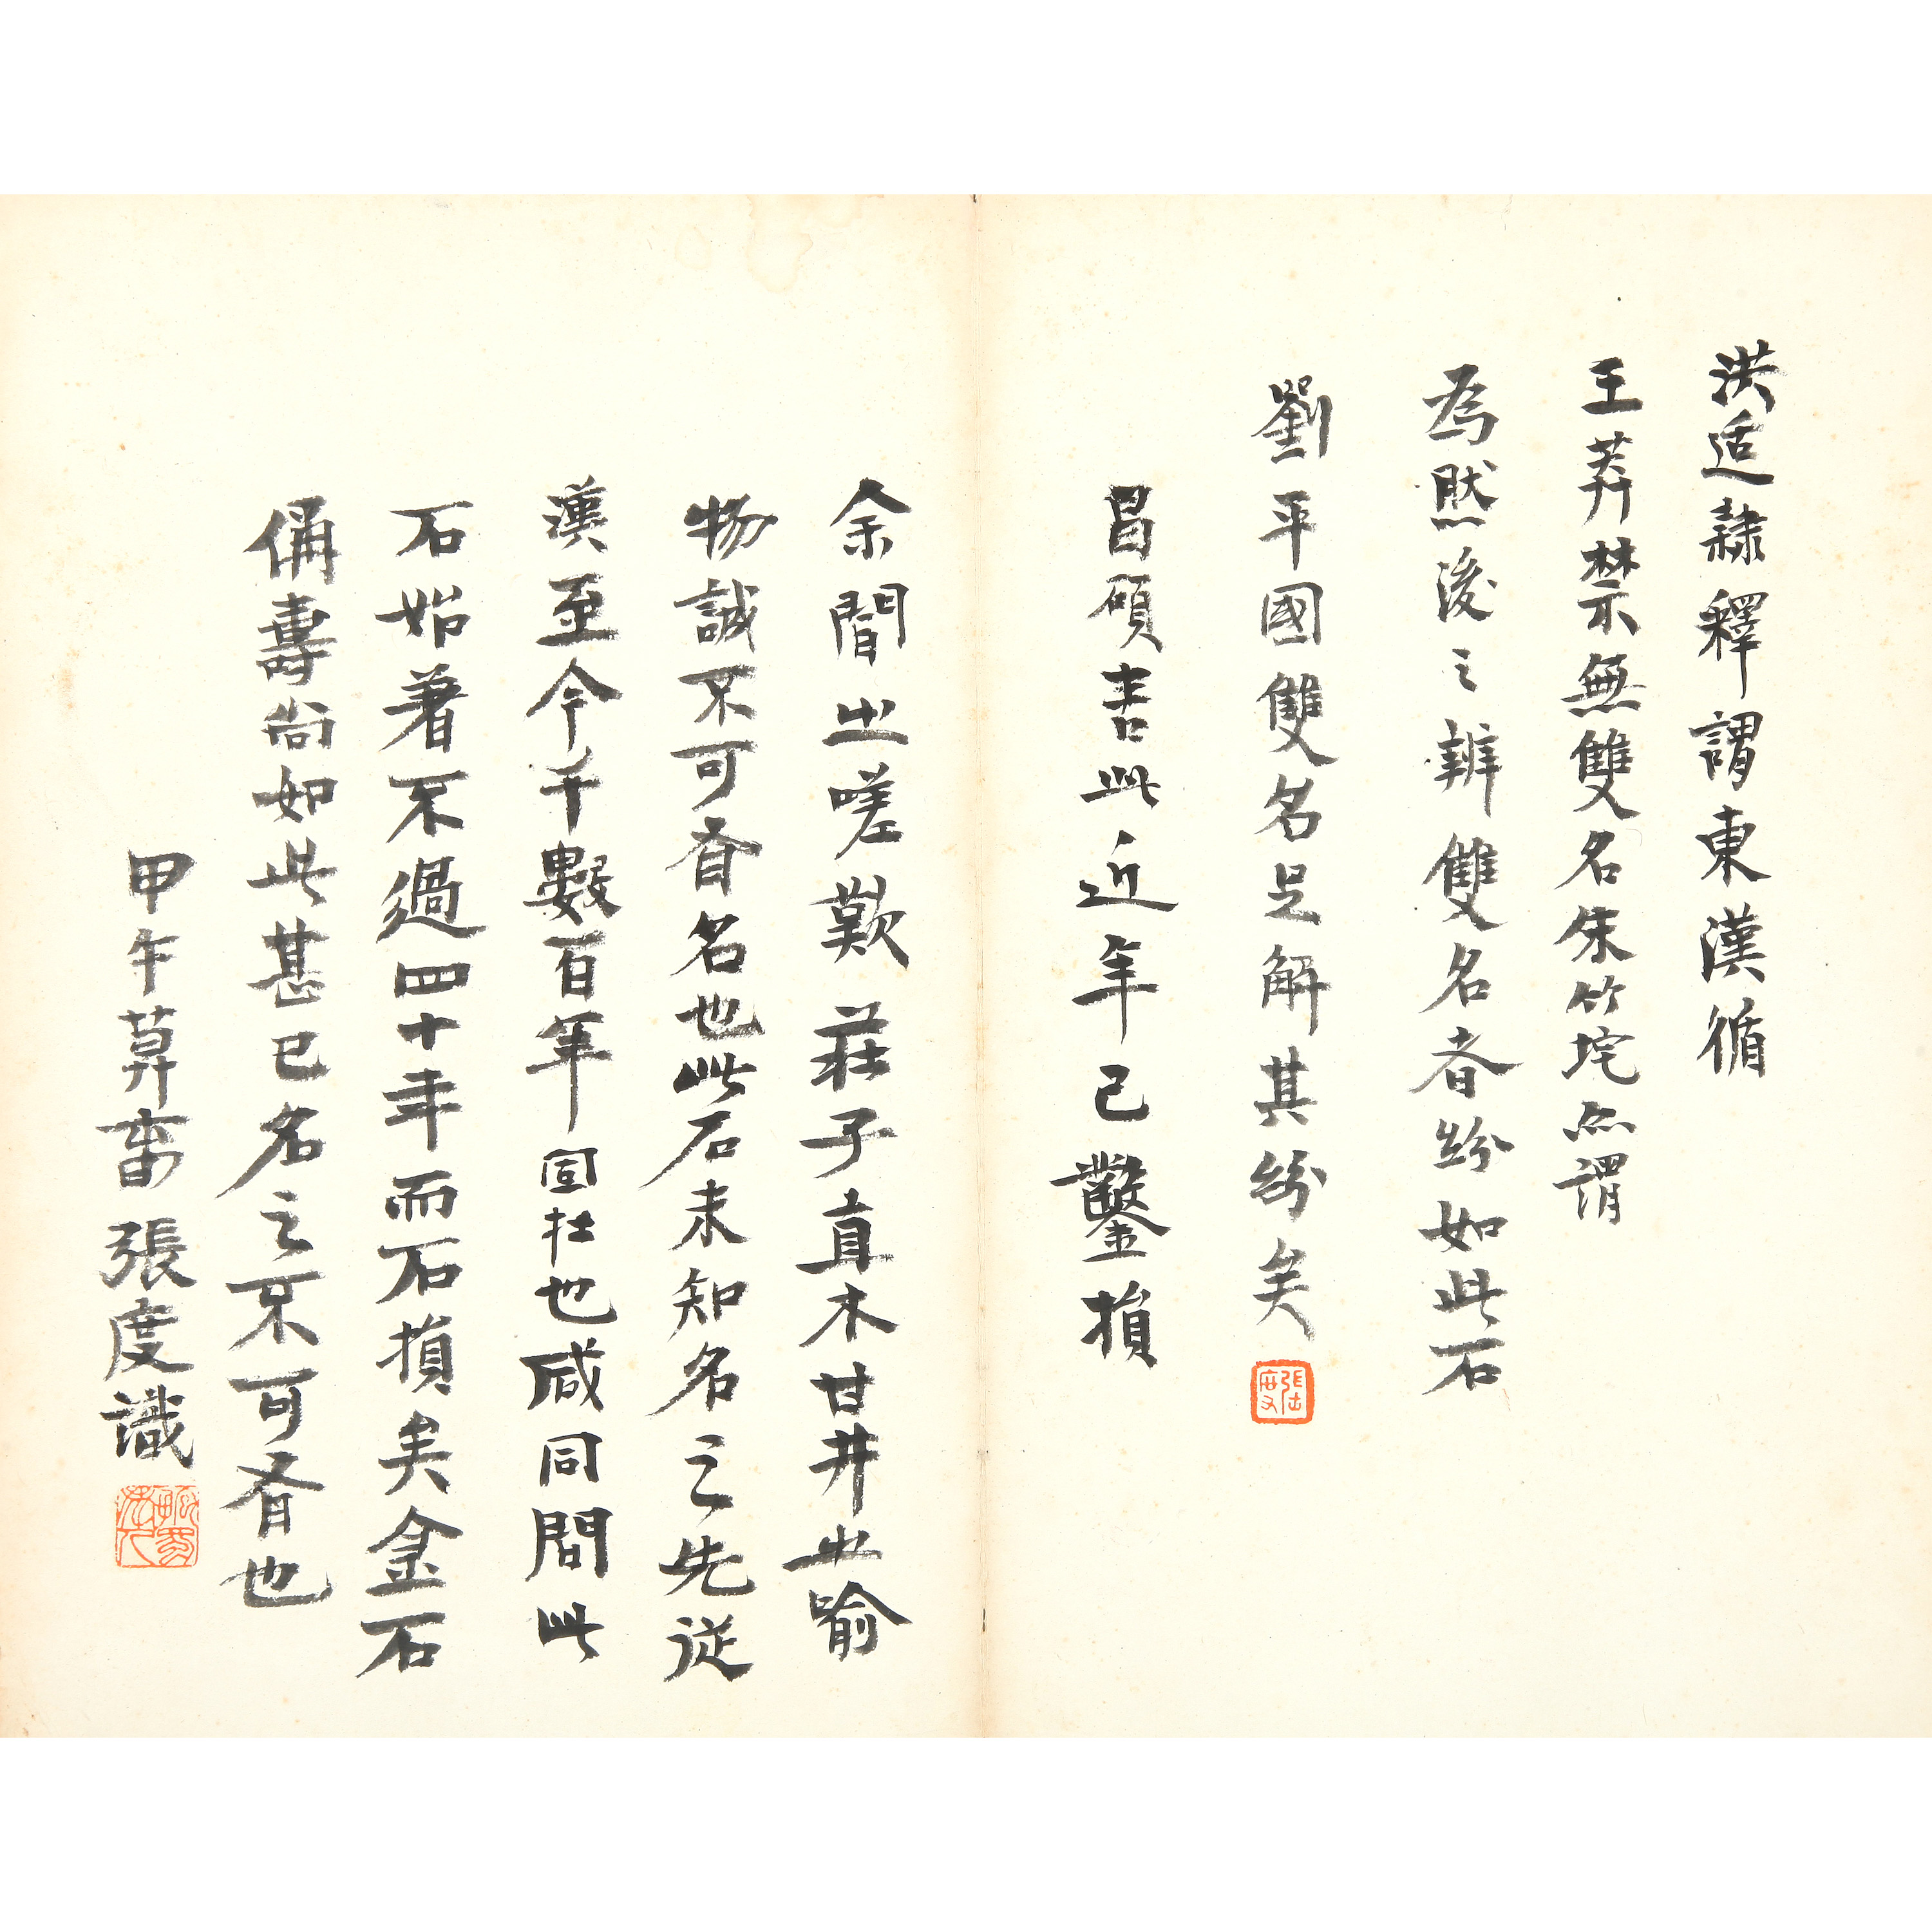 洪适隸釋謂東漢循
王莽禁無雙名朱竹垞亦謂
為然後之辨雙名者紛如此石
劉平國雙名足解其紛矣
張度
昌碩書此近年已鑿損
余聞之嗟歎莊子直木甘井之喻
物誠不可有名也此石未知名之先從
漢至今千數百年固壮也咸同間此
石始著不過四十年而石損矣金石
偁壽尚如此甚已名之不可有也
甲午莫春張度識